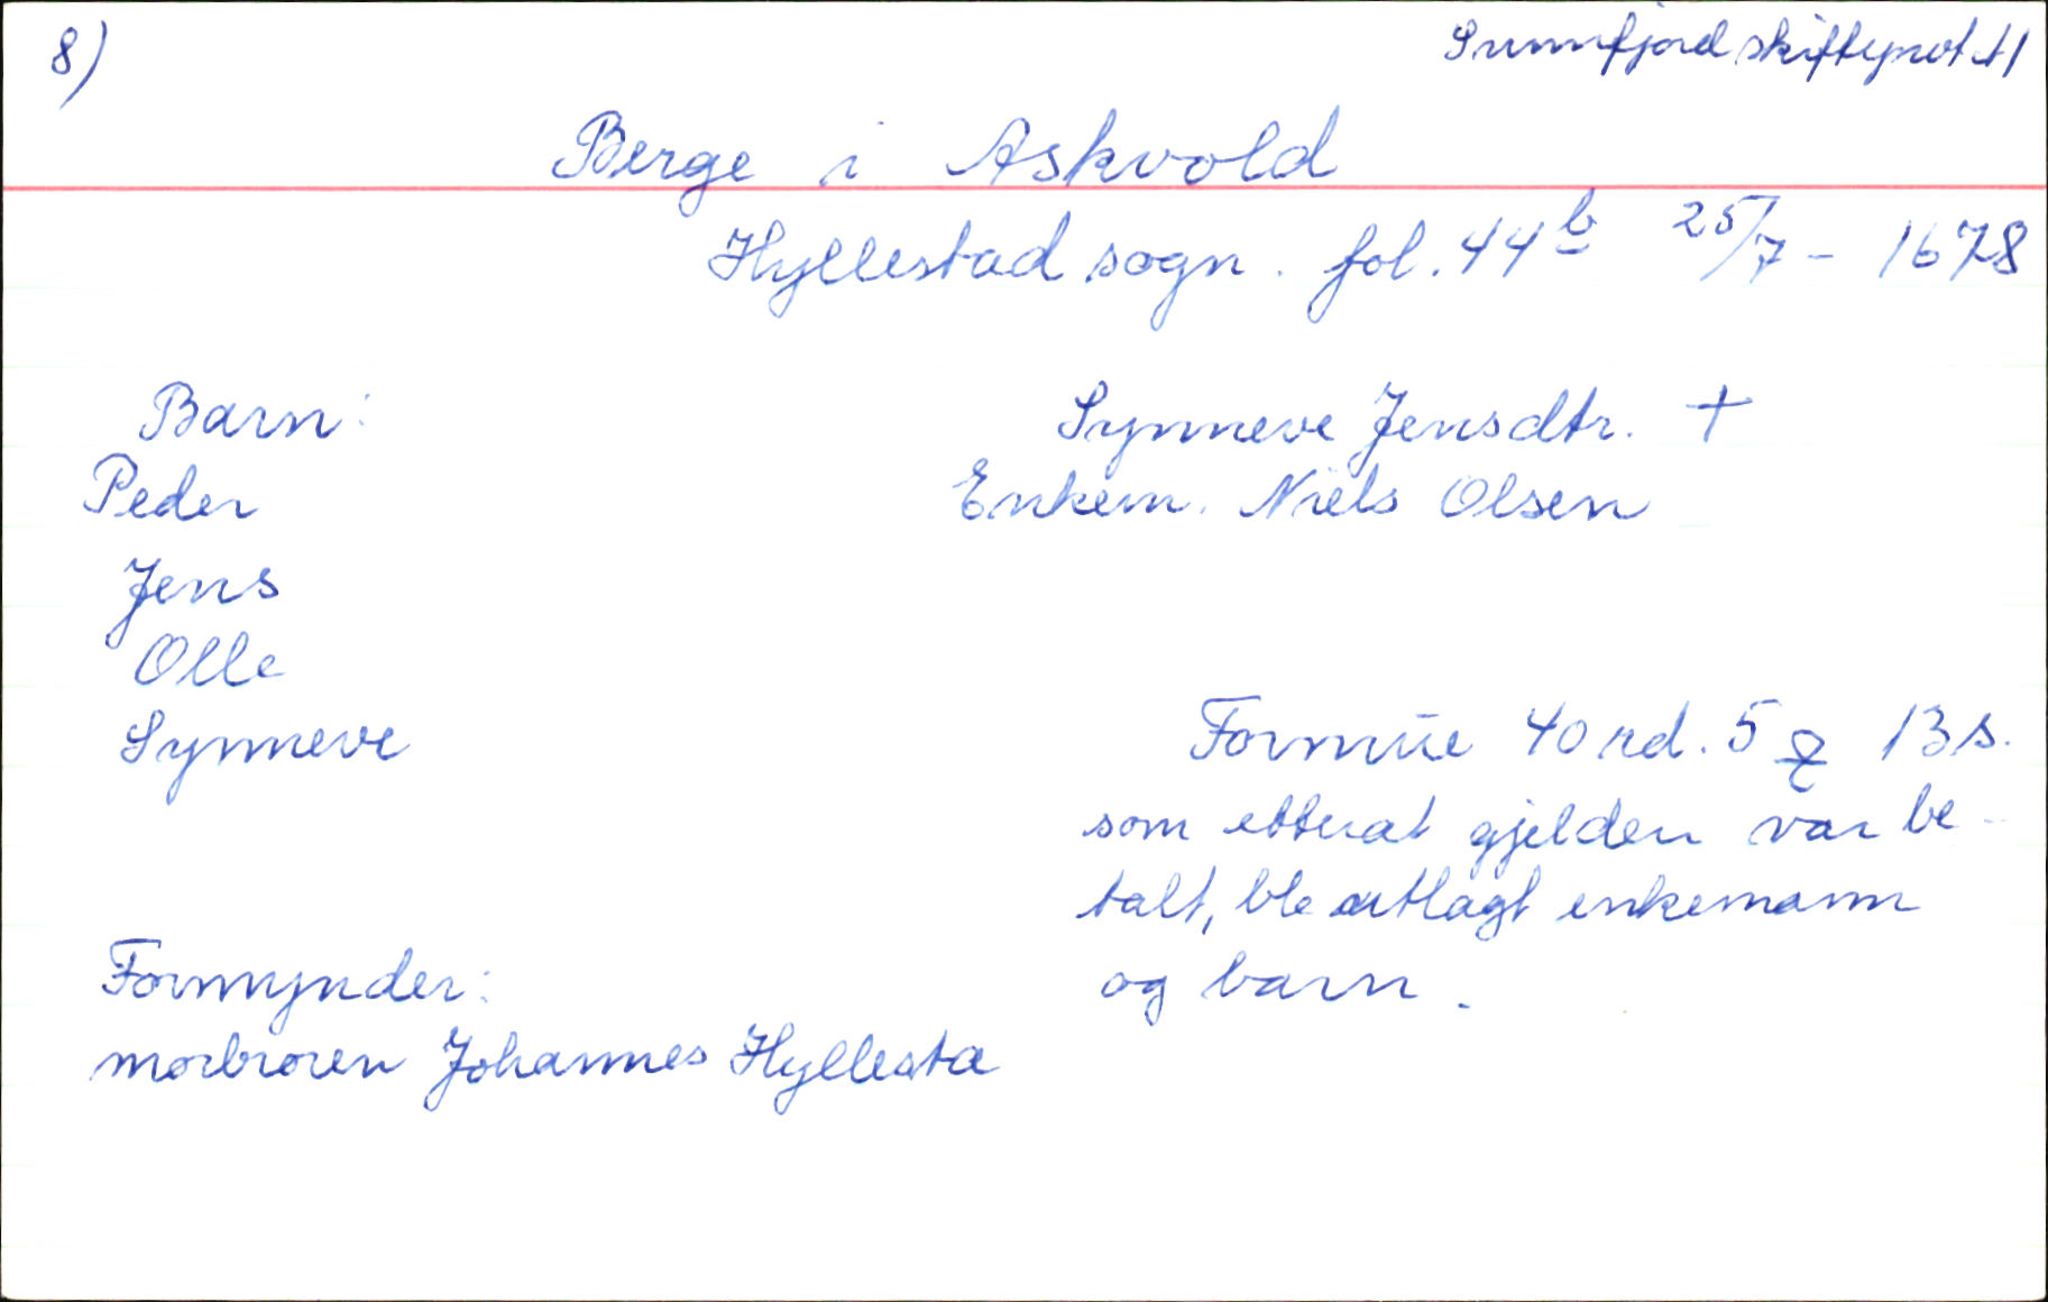 8)
Sunnfjord skifteprot. A1
Berge i Askvold
Hyllestad sogn. fol. 44b 25/7 - 1678
Barn:
Synneve Jensdtr. †
Peder
Enkem. Niels Olsen
Jens
Olle
Synneve
Formue 40 rd. 5 13 s.
som etterat gjelden var be-
talt, ble utlagt enkemann
og barn.
Formynder:
morbroren Johannes Hyllesta